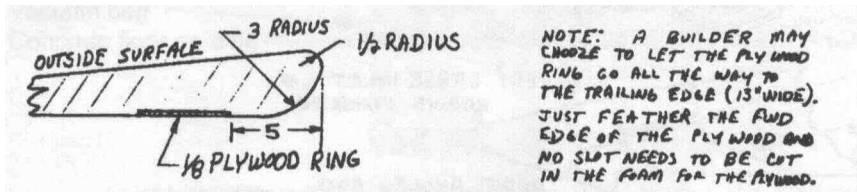 OUTSIDE SURFALE
3 RADIUS
1/2 RADIUS
5
1/8 PLYWOOD RING
NOTE: A BUILDER MAY
CHOOZE TO LET THE PLYWOOD
RING GO ALL THE WAY TO
THE TRAILING EDGE (13" WIDE).
JUST FEATHER THE FWD
EDGE OF THE PLYWOOD AND
NO SLOT NEEDS TO BE CUT
IN THE FOAM FOR THE PLYWOOD.